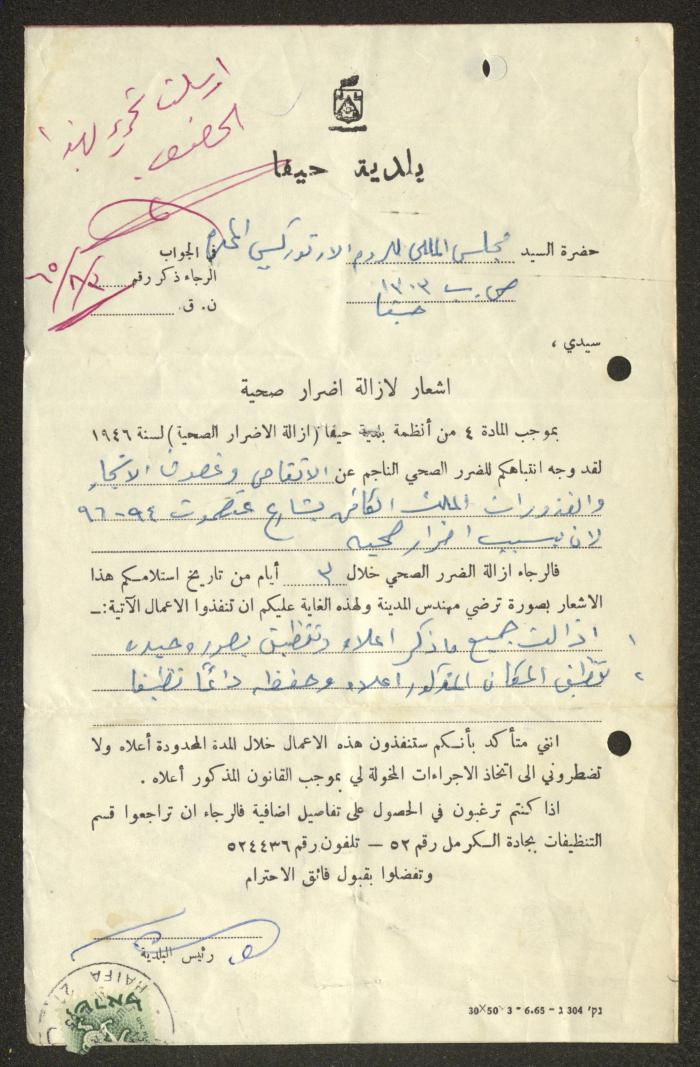 ارسلت تحرير بهذا
الخصوص
بلدية حيفا
حضرة السيد مجلس المللي للروم الارثوذكسي المحترم
ص.ب ١٣٠٣
حيفا
في الجواب
الرجاء ذكر رقم
ن. ق.
سيدي ،
اشعار لازالة اضرار صحية
بموجب المادة ٤ من أنظمة بلدية حيفا (ازالة الاضرار الصحية) لسنة ١٩٤٦
لقد وجه انتباهكم للضرر الصحي الناجم عن الانقاض وغصون الاشجار
والقذورات الملك الكائن بشارع ٩٤-٩٦
لان يسبب اضرار صحيه
فالرجاء ازالة الضرر الصحي خلال ٣ أيام من تاريخ استلامكم هذا
الاشعار بصورة ترضي مهندس المدينة ولهذه الغاية عليكم ان تنفذوا الاعمال الآتية:ــ
١ ازالت جميع ما ذكر اعلاه وتنظيف بصوره جيده
٢ تنظيف المكان المذكور اعلاه وحفظه دائمًا نظيفا
انني متأكد بأنكم ستنفذون هذه الاعمال خلال المدة المحدودة أعلاه ولا
تضطروني الى اتخاذ الاجراءات المخولة لي بموجب القانون المذكور أعلاه .
اذا كنتم ترغبون في الحصول على تفاصيل اضافية فالرجاء ان تراجعوا قسم
التنظيفات بجادة الكرمل رقم ٥٢ — تلفون رقم ٥٢٤٤٣٦
وتفضلوا بقبول فائق الاحترام
رئيس البلدية
HAIFA
נק' 304 ג - 6.65 - 3 50×30